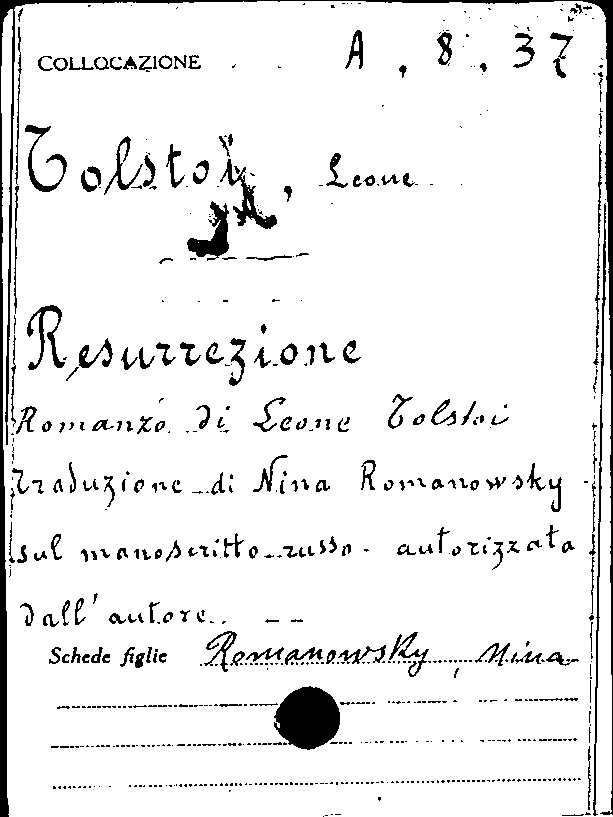 COLLOCAZIONE A. 8. 37
Tolstoi, Leone
Resurrezione
Romanzo di Leone Tolstoi
traduzione di Nina Romanowsky
sul manoscritto russo. autorizzata
dall'autore.
Schede figlie Romanowsky, Nina